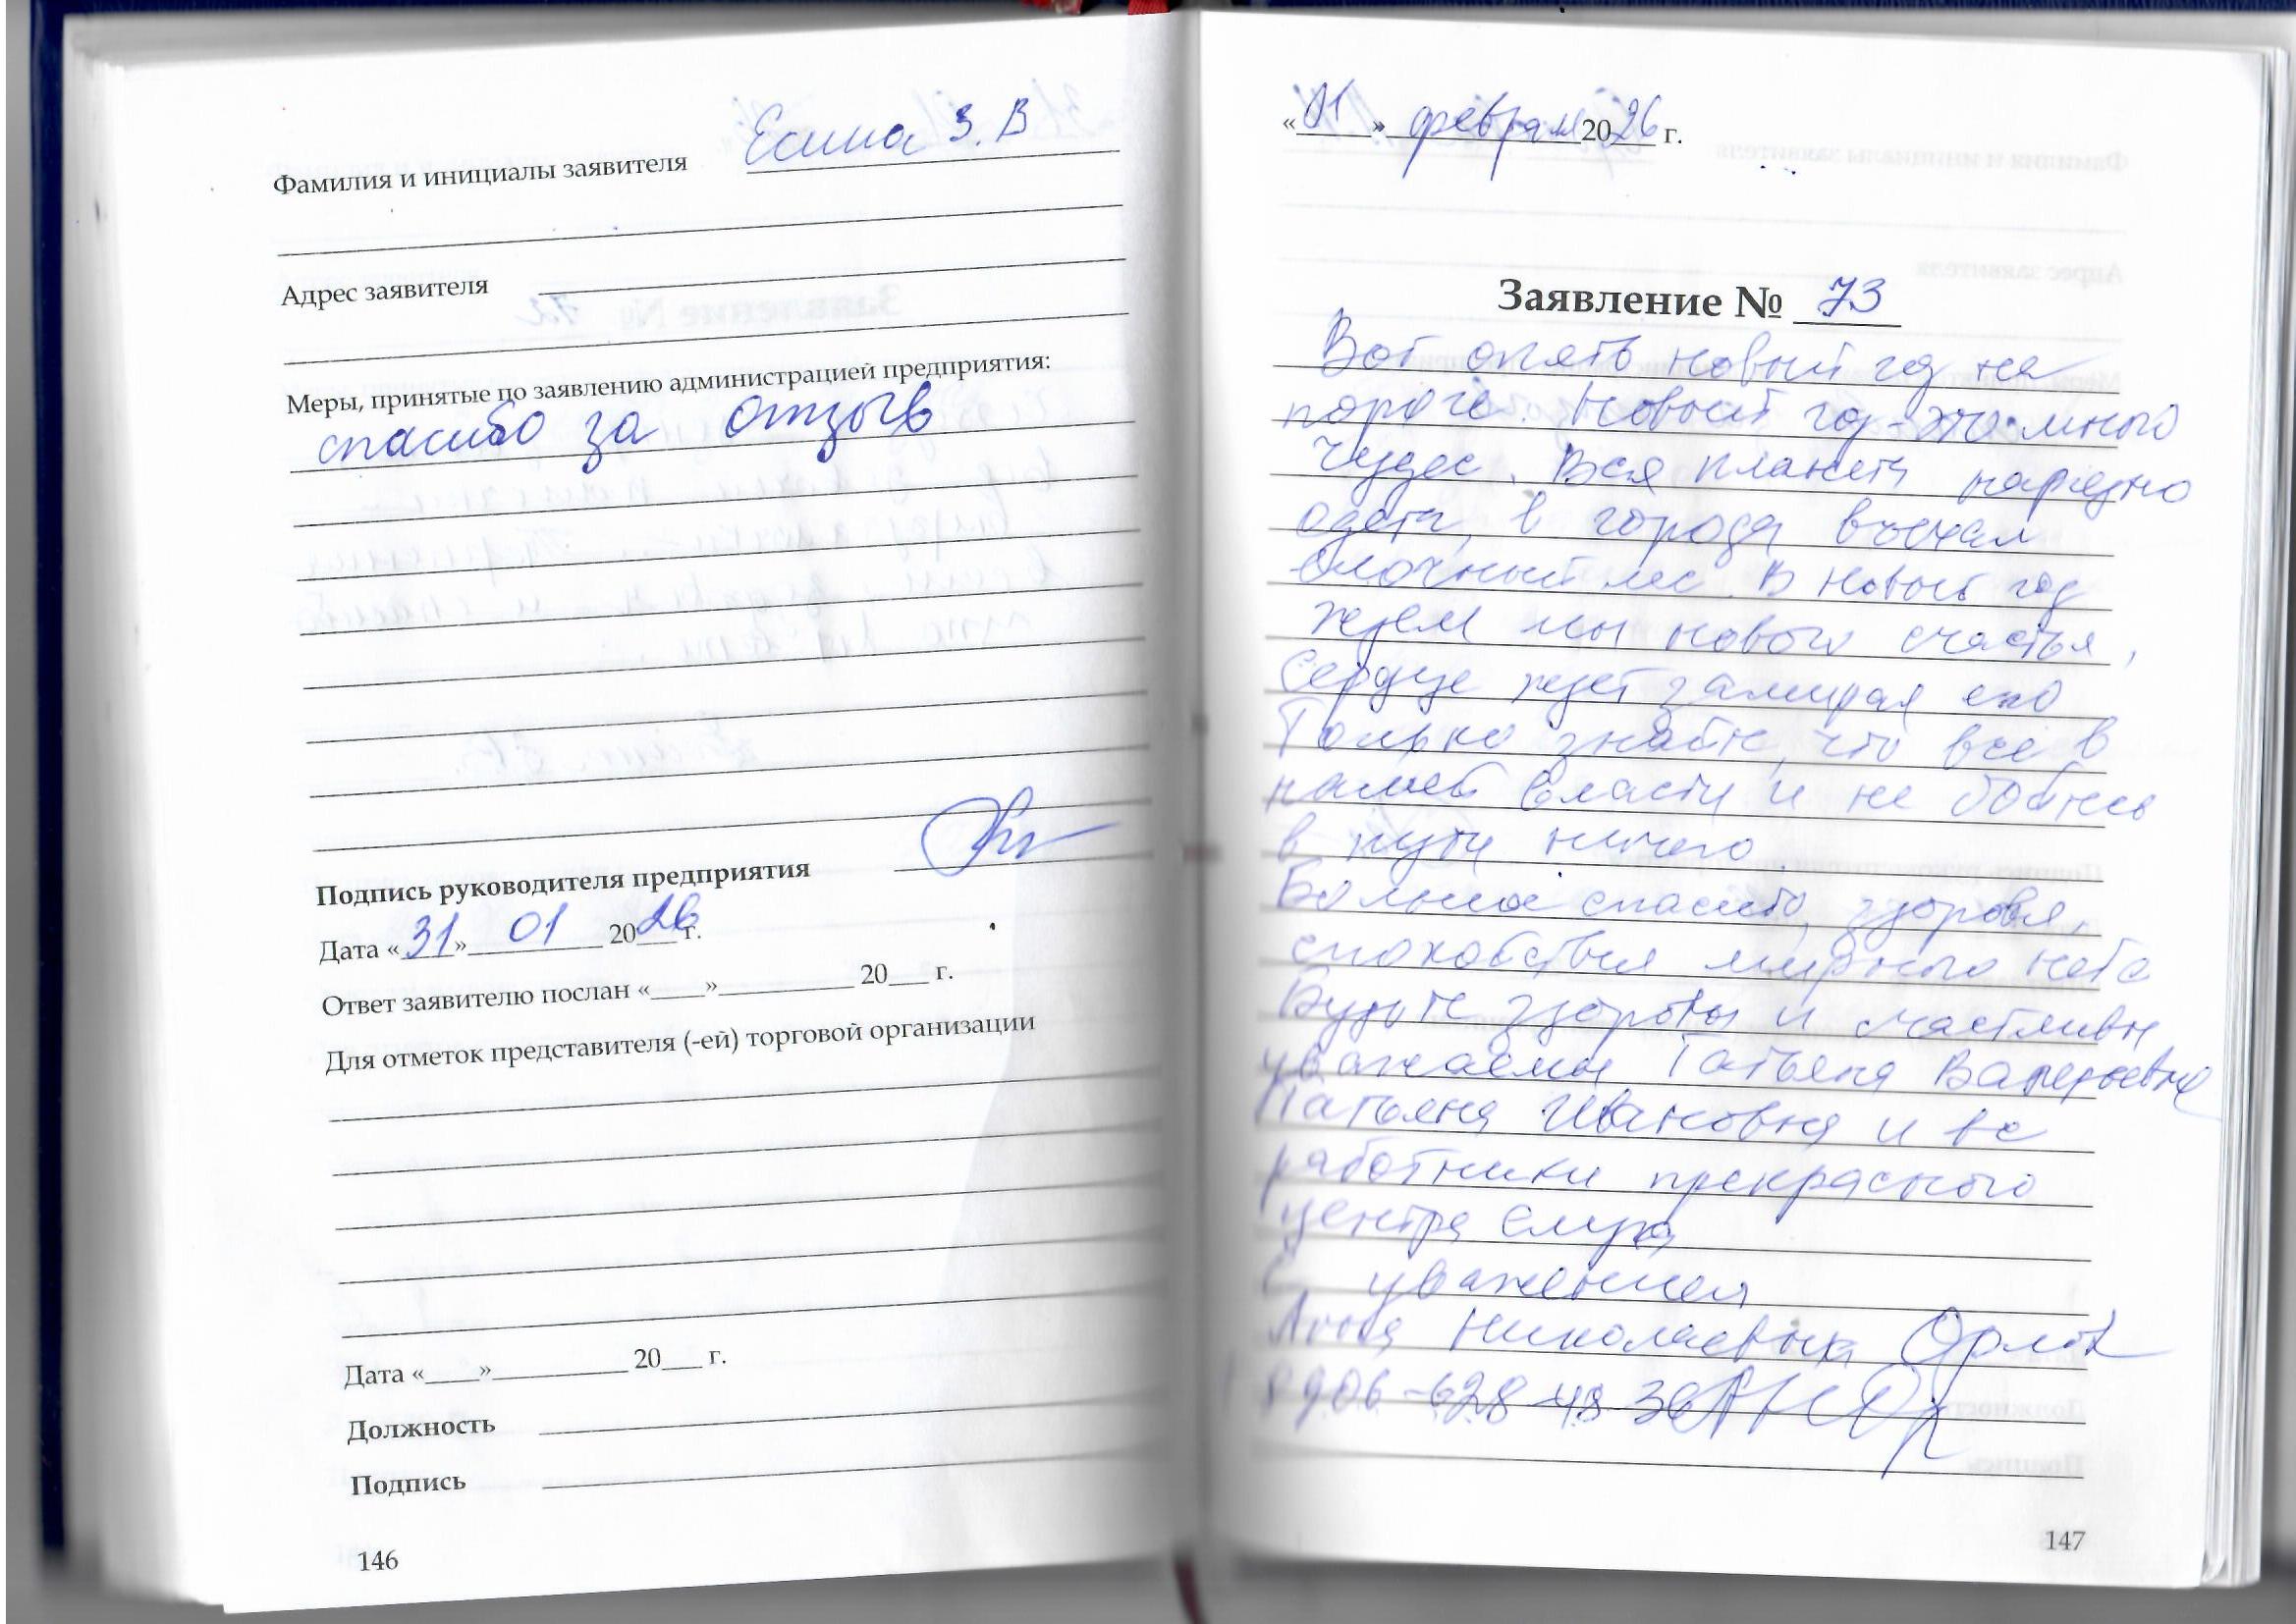 Фамилия и инициалы заявителя Есина З. В
Адрес заявителя
Меры, принятые по заявлению администрацией предприятия:
спасибо за отзыв
Подпись руководителя предприятия
Дата «31» 01 2026 г.
Ответ заявителю послан «____»__________ 20___ г.
Для отметок представителя (-ей) торговой организации
Дата «____»__________ 20___ г.
Должность
Подпись
146
«01» феврал 2026 г.
Заявление № 73
Вот опять новый год на
пороге. Новый год - это много
чудес. Вся планета нарядно
одета, в города въехал
ёлочный лес. В новый год
ждем мы нового счастья,
Сердце ждет замирая его
Только знайте, что все в
нашей власти и не бойтесь
в пути ничего.
Большое спасибо, здоровья,
спокойствия мирного неба
Будьте здоровы и счастливы
уважаемы Татьяна Валерьевна
Татьяна Ивановна и все
работники прекрасного
центра Слуха
С уважением
Анна Николаевна
8906-628-48-36
147